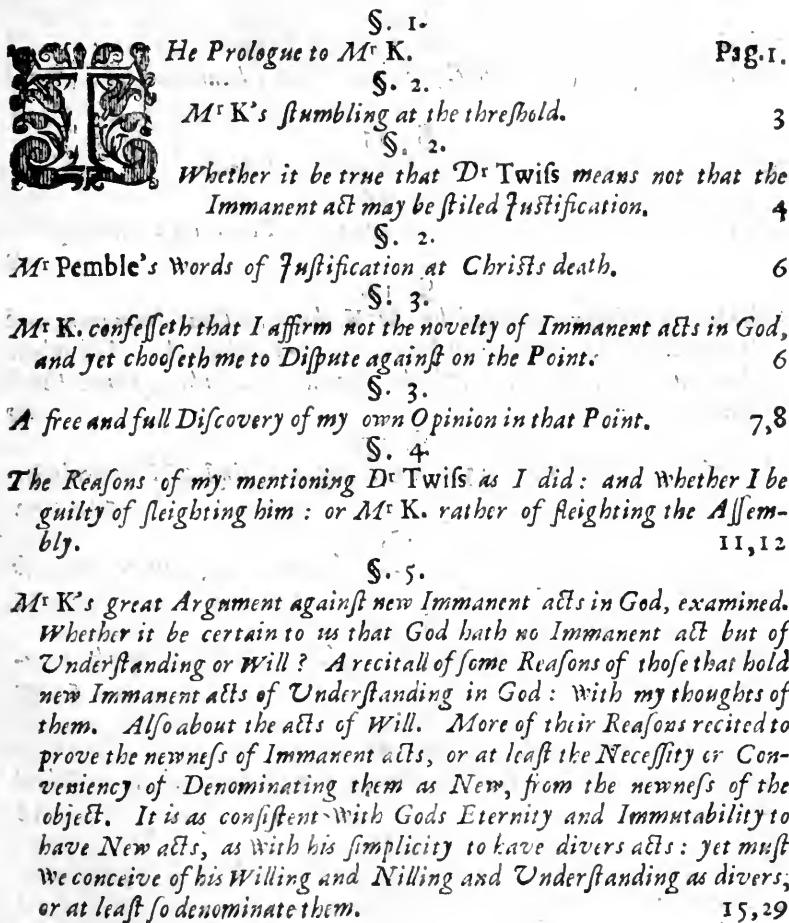 §. 1.
THe Prologue to Mr K. Pag. 1.
§. 2.
Mr K's ſtumbling at the threſhold. 3
§. 2.
Whether it be true that Dr Twiſs means not that the
Immanent act may be ſtiled Juſtification. 4
§. 2.
Mr Pemble's words of Juſtification at Chriſts death. 6
§. 3.
Mr K. confeſſeth that I affirm not the novelty of Immanent acts in God,
and yet chooſeth me to Diſpute againſt on the Point. 6
§. 3.
A free and full Diſcovery of my own Opinion in that Point. 7,8
§. 4
The Reaſons of my mentioning Dr Twiſs as I did: and whether I be
guilty of ſleighting him: or Mr K. rather of ſleighting the Aſſem-
bly. 11,12
§. 5.
Mr K's great Argument againſt new Immanent acts in God, examined.
Whether it be certain to us that God hath no Immanent act but of
Underſtanding or Will? A recitall of ſome Reaſons of thoſe that hold
new Immanent acts of Underſtanding in God: with my thoughts of
them. Alſo about the acts of Will. More of their Reaſons recited to
prove the newneſs of Immanent acts, or at leaſt the Neceſſity or Con-
veniency of Denominating them as New, from the newneſs of the
object. It is as conſiſtent with Gods Eternity and Immutability to
have New acts, as with his ſimplicity to have divers acts: yet muſt
we conceive of his Willing and Nilling and Underſtanding as divers,
or at leaſt ſo denominate them. 15,29